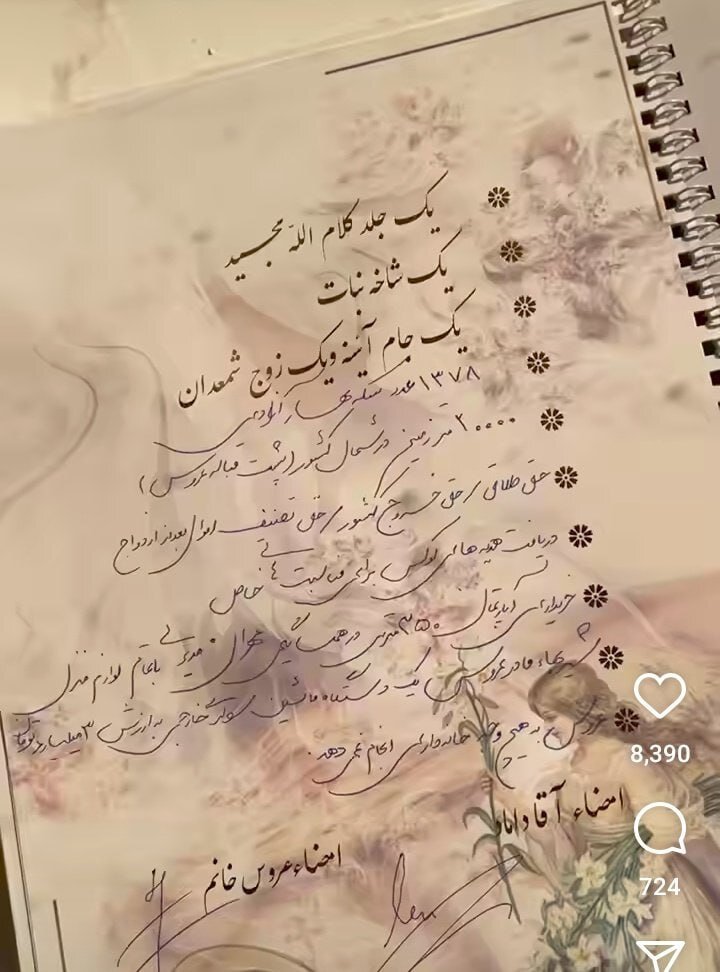 یک جلد کلام الله مجید
یک شاخه نبات
یک جام آینه و یک زوج شمعدان
۱۳۷۸ عدد سکه بهار آزادی
۲۰۰۰۰ متر زمین در شمال کشور (پشت قباله عروس)
حق طلاق، حق خروج کشور، حق تصنیف اموال بعد از ازدواج
دریافت هدیه های لوکس برای مناسبت های خاص
خریداری آپارتمان ۳۵۰ متری در همسایگی با تمام لوازم منزل
شیربهاء مادر عروس یک دستگاه ماشین سواری خارجی به ارزش ۳ میلیارد تومان
عروس به هیچ وجه خانه داری انجام نمی دهد.
امضاء آقا داماد
امضاء عروس خانم
8,390
724